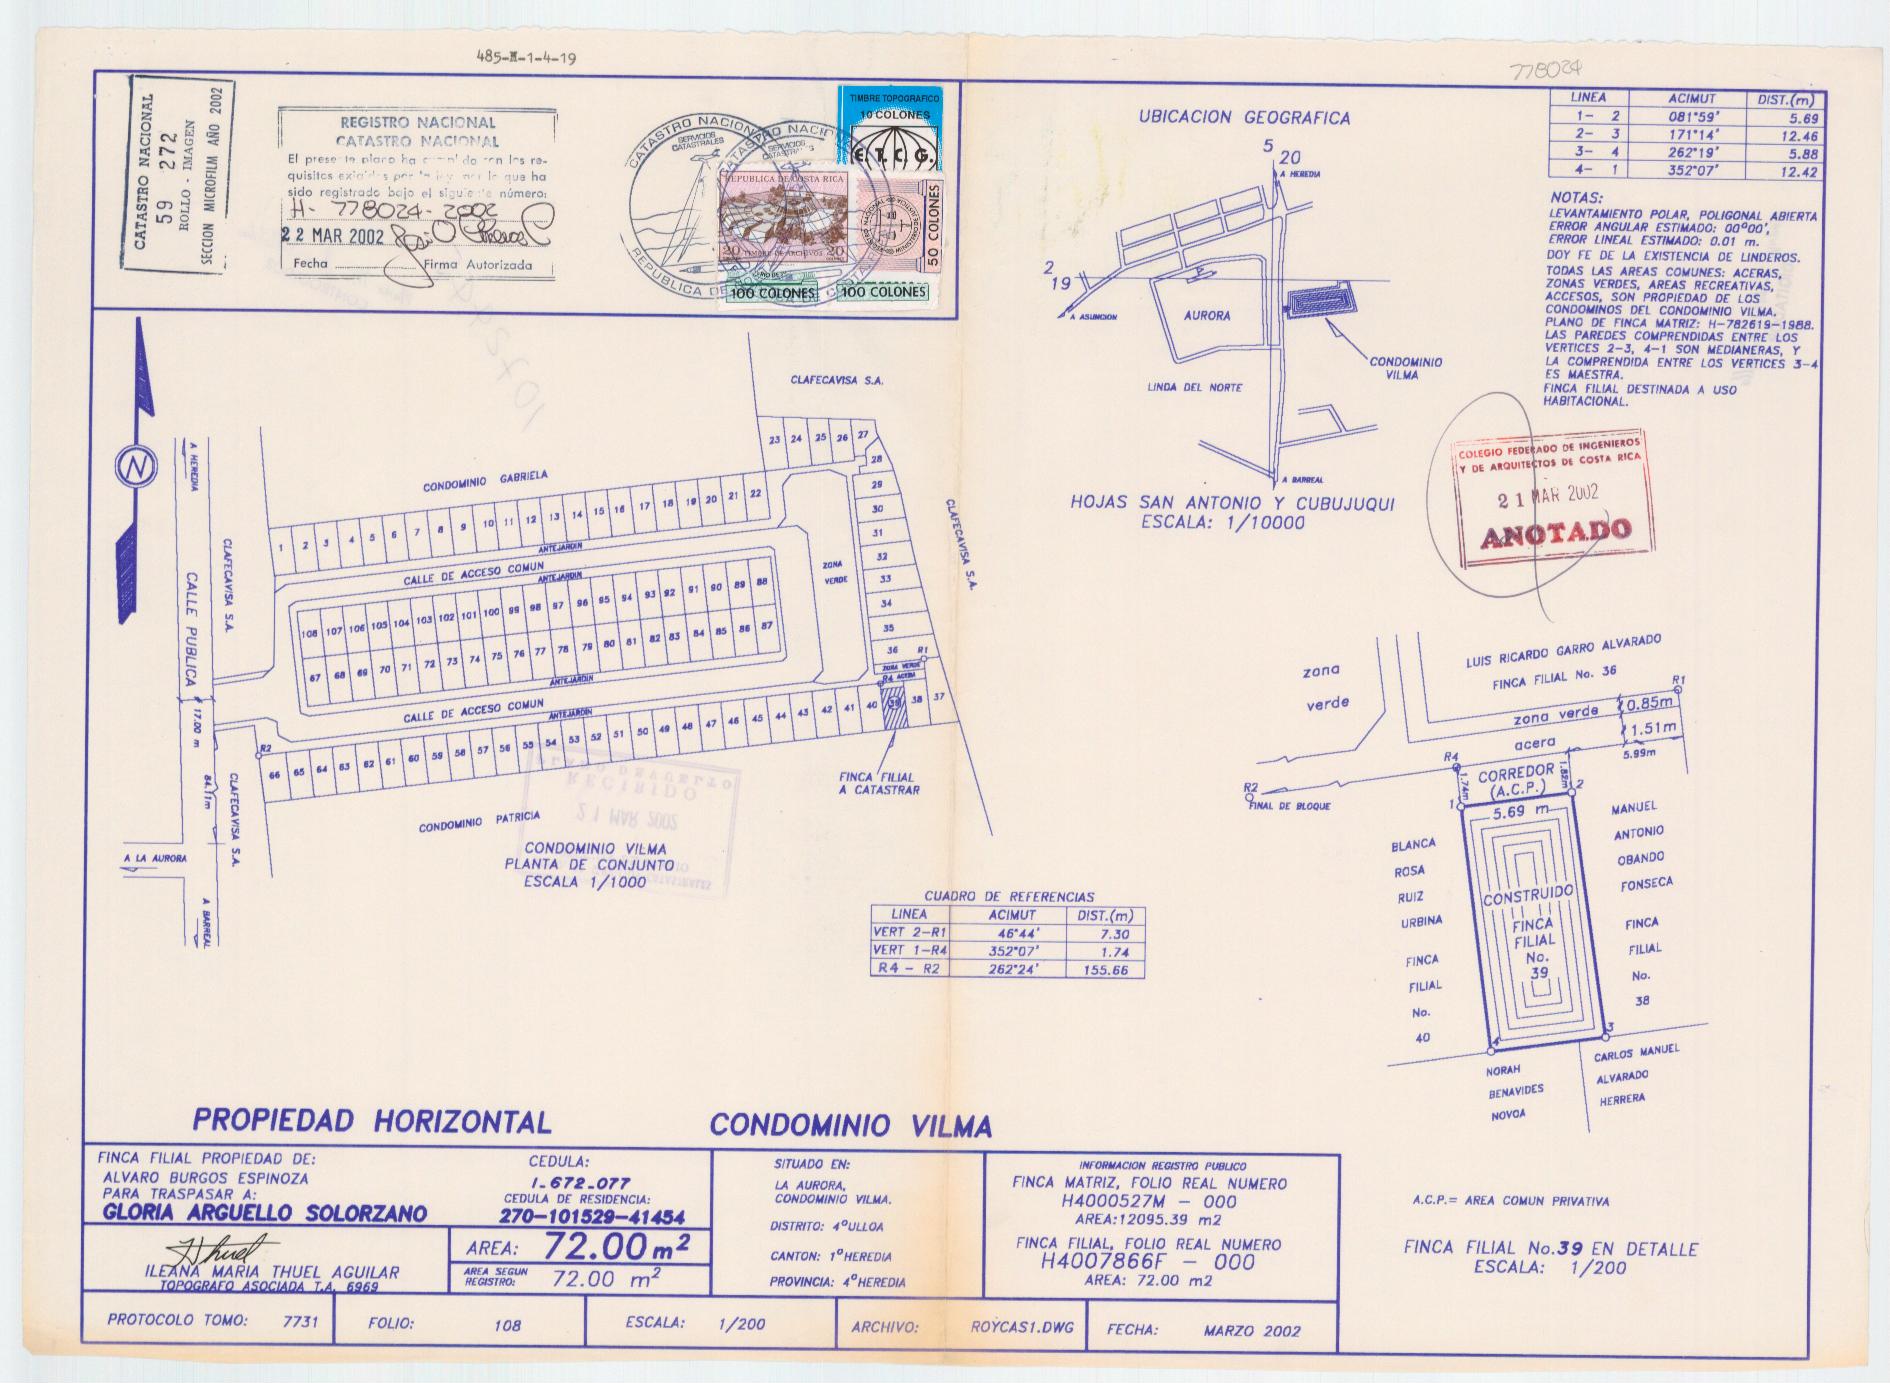 485-M-1-4-19
778024
CATASTRO NACIONAL
59 272
ROLLO - IMAGEN
SECCION MICROFILM AÑO 2002
REGISTRO NACIONAL
CATASTRO NACIONAL
El presente plano ha cumplido con los re-
quisitos exigidos por la ley por lo que ha
sido registrado bajo el siguiente número:
H- 778024-2002
22 MAR 2002
Fecha Firma Autorizada
CATASTRO NACIONAL
SERVICIOS
CATASTRALES
TIMBRE TOPOGRAFICO
10 COLONES
E.T.C.G.
REPUBLICA DE COSTA RICA
20 TIMBRE DE ARCHIVOS 20
50 COLONES
100 COLONES
100 COLONES
UBICACION GEOGRAFICA
5
20
A HEREDIA
2
19
A ASUNCION
AURORA
CONDOMINIO
VILMA
LINDA DEL NORTE
A BARREAL
HOJAS SAN ANTONIO Y CUBUJUQUI
ESCALA: 1/10000
LINEA ACIMUT DIST.(m)
1- 2 081°59' 5.69
2- 3 171°14' 12.46
3- 4 262°19' 5.88
4- 1 352°07' 12.42
NOTAS:
LEVANTAMIENTO POLAR, POLIGONAL ABIERTA
ERROR ANGULAR ESTIMADO: 00°00',
ERROR LINEAL ESTIMADO: 0.01 m.
DOY FE DE LA EXISTENCIA DE LINDEROS.
TODAS LAS AREAS COMUNES: ACERAS,
ZONAS VERDES, AREAS RECREATIVAS,
ACCESOS, SON PROPIEDAD DE LOS
CONDOMINOS DEL CONDOMINIO VILMA.
PLANO DE FINCA MATRIZ: H-782619-1988.
LAS PAREDES COMPRENDIDAS ENTRE LOS
VERTICES 2-3, 4-1 SON MEDIANERAS, Y
LA COMPRENDIDA ENTRE LOS VERTICES 3-4
ES MAESTRA.
FINCA FILIAL DESTINADA A USO
HABITACIONAL.
COLEGIO FEDERADO DE INGENIEROS
Y DE ARQUITECTOS DE COSTA RICA
21 MAR 2002
ANOTADO
N
A HEREDIA
CALLE PUBLICA
17.00 m
84.11m
A LA AURORA
A BARREAL
CLAFECAVISA S.A.
CLAFECAVISA S.A.
CLAFECAVISA S.A.
CLAFECAVISA S.A.
CONDOMINIO GABRIELA
23 24 25 26 27
28
29
30
31
32
33
34
35
36
1 2 3 4 5 6 7 8 9 10 11 12 13 14 15 16 17 18 19 20 21 22
ANTEJARDIN
CALLE DE ACCESO COMUN
ANTEJARDIN
108 107 106 105 104 103 102 101 100 99 98 97 96 95 94 93 92 91 90 89 88
67 68 69 70 71 72 73 74 75 76 77 78 79 80 81 82 83 84 85 86 87
ANTEJARDIN
CALLE DE ACCESO COMUN
ANTEJARDIN
ZONA
VERDE
ZONA VERDE
R1
R4 ACERA
R2
66 65 64 63 62 61 60 59 58 57 56 55 54 53 52 51 50 49 48 47 46 45 44 43 42 41 40 39 38 37
FINCA FILIAL
A CATASTRAR
CONDOMINIO PATRICIA
CONDOMINIO VILMA
PLANTA DE CONJUNTO
ESCALA 1/1000
RECIBIDO
21 MAR 2002
CUADRO DE REFERENCIAS
LINEA ACIMUT DIST.(m)
VERT 2-R1 46°44' 7.30
VERT 1-R4 352°07' 1.74
R4 - R2 262°24' 155.66
zona
verde
LUIS RICARDO GARRO ALVARADO
FINCA FILIAL No. 36
R1
zona verde 0.85m
acera 1.51m
5.99m
R4
R2
FINAL DE BLOQUE
1.74m
CORREDOR
(A.C.P.)
1.82m
1
2
5.69 m
BLANCA
ROSA
RUIZ
URBINA
FINCA
FILIAL
No.
40
CONSTRUIDO
FINCA
FILIAL
No.
39
MANUEL
ANTONIO
OBANDO
FONSECA
FINCA
FILIAL
No.
38
4
3
NORAH
BENAVIDES
NOVOA
CARLOS MANUEL
ALVARADO
HERRERA
PROPIEDAD HORIZONTAL CONDOMINIO VILMA
FINCA FILIAL PROPIEDAD DE:
ALVARO BURGOS ESPINOZA
PARA TRASPASAR A:
GLORIA ARGUELLO SOLORZANO
CEDULA:
1-672-077
CEDULA DE RESIDENCIA:
270-101529-41454
ILEANA MARIA THUEL AGUILAR
TOPOGRAFO ASOCIADA T.A. 6969
AREA: 72.00 m2
AREA SEGUN
REGISTRO: 72.00 m2
SITUADO EN:
LA AURORA,
CONDOMINIO VILMA.
DISTRITO: 4°ULLOA
CANTON: 1°HEREDIA
PROVINCIA: 4°HEREDIA
INFORMACION REGISTRO PUBLICO
FINCA MATRIZ, FOLIO REAL NUMERO
H4000527M - 000
AREA:12095.39 m2
FINCA FILIAL, FOLIO REAL NUMERO
H4007866F - 000
AREA: 72.00 m2
PROTOCOLO TOMO: 7731
FOLIO: 108
ESCALA: 1/200
ARCHIVO: ROYCAS1.DWG
FECHA: MARZO 2002
A.C.P.= AREA COMUN PRIVATIVA
FINCA FILIAL No.39 EN DETALLE
ESCALA: 1/200